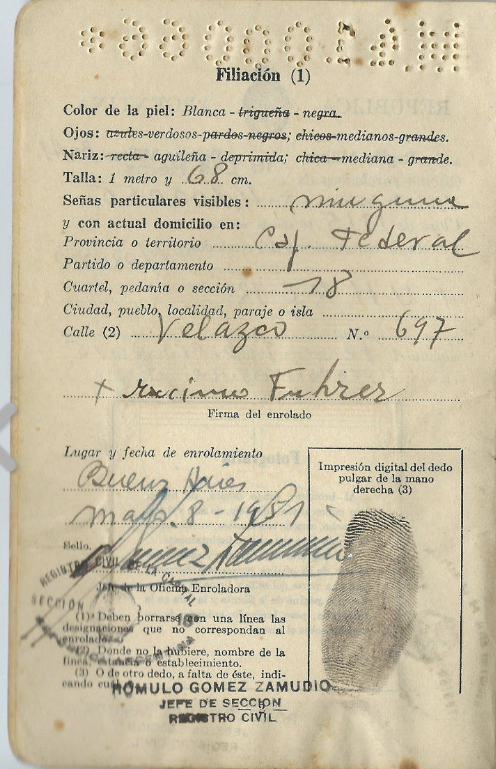 Filiación (1)
Color de la piel: Blanca - trigueña - negra.
Ojos: azules-verdosos-pardos-negros; chicos-medianos-grandes.
Nariz: recta - aguileña - deprimida; chica - mediana - grande.
Talla: 1 metro y 68 cm.
Señas particulares visibles: ninguna
y con actual domicilio en:
Provincia o territorio Cap. Federal
Partido o departamento
Cuartel, pedanía o sección 18
Ciudad, pueblo, localidad, paraje o isla
Calle (2) Velazco N.º 697
Fuhrer
Firma del enrolado
Lugar y fecha de enrolamiento
Buenos Aires
8 - 1951
Sello.
Jefe de la Oficina Enroladora
REGISTRO CIVIL DE LA CAPITAL
SECCIÓN
(1) Deben borrarse con una línea las
designaciones que no correspondan al
enrolado.
(2) Donde no la hubiere, nombre de la
finca, estancia o establecimiento.
(3) O de otro dedo, a falta de éste, indi-
cando cuál.
ROMULO GOMEZ ZAMUDIO
JEFE DE SECCION
REGISTRO CIVIL
Impresión digital del dedo
pulgar de la mano
derecha (3)